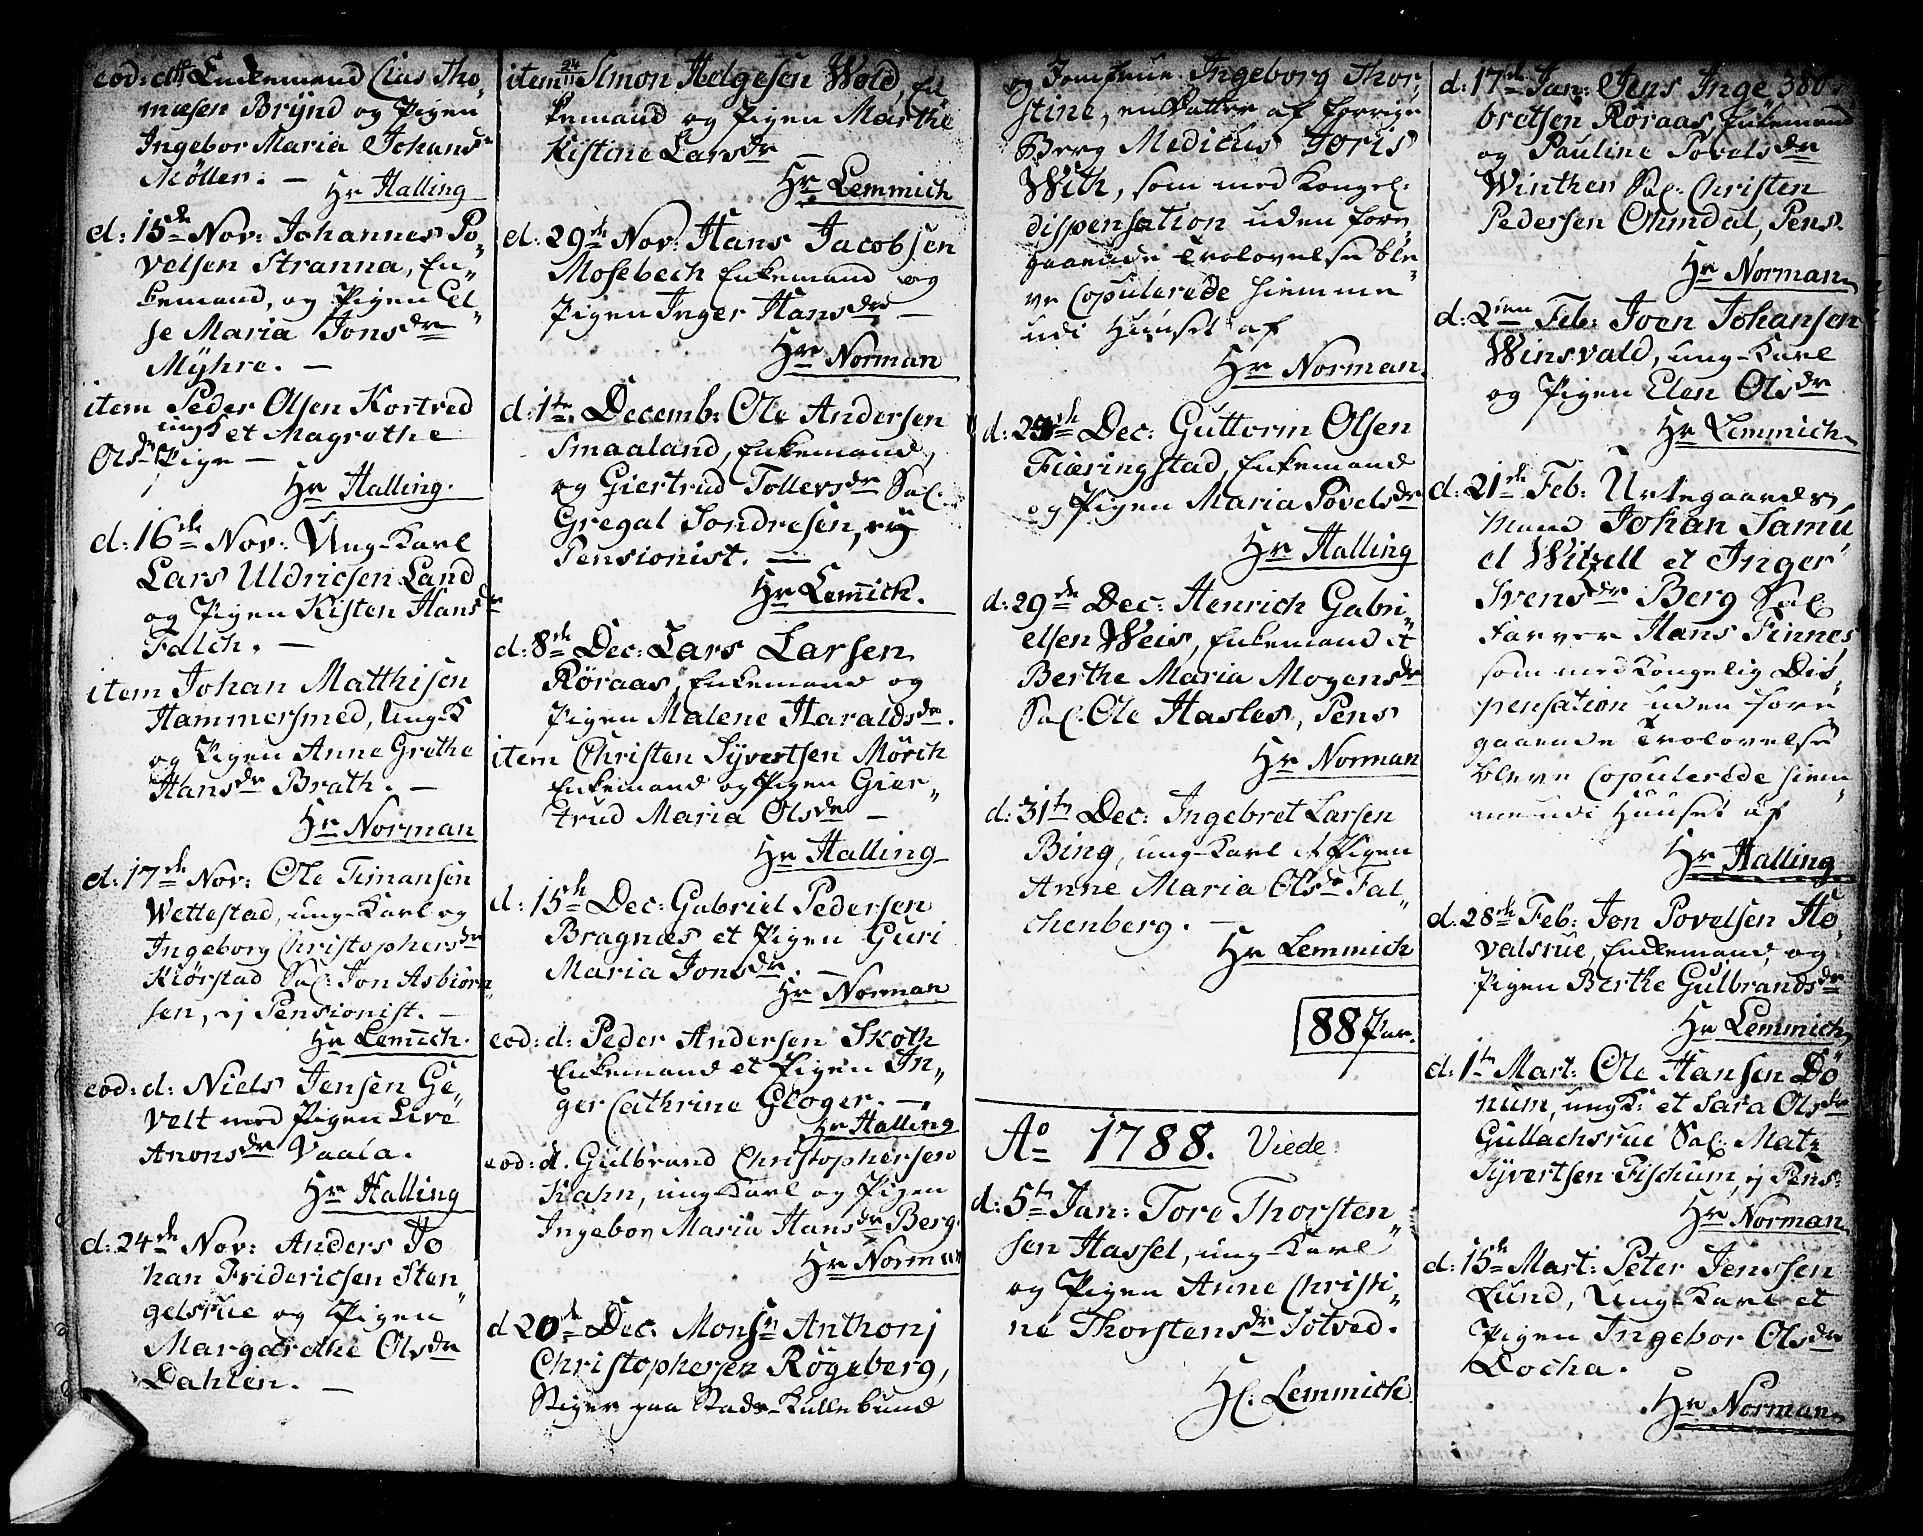 eod: d: Enkemand Clas Tho-
mæsen Brÿnd og Pigen
Ingebor Maria Johansdr
Möller. —
Hr Halling
d: 15de Nov: Johannes Po-
velsen Stranna, En-
kemand, og Pigen El-
se Maria Jonsdr
Mÿhre. —
item Peder Olsen Kortved
ungk et Magrethe
Olsdr Pige —
Hr Halling.
d: 16de Nov: Ung-Karl
Lars Uldricsen Land
og Pigen Kisten Hansdr
Falch. —
item Johan Matthisen
Hammersmed, Ung-K
og Pigen Anne Grethe
Hansdr Brath. —
Hr Norman
d: 17de Nov: Ole Timansen
Wettestad, ung-Karl og
Ingeborg Christophersdr
Kiörstad Sal: Jon Asbiörn-
sen, ej Pensionist. —
Hr Lemich.
eod: d: Niels Jensen Ge-
velt med Pigen Live
Anonsdr Vaala.
Hr Halling
d: 24de Nov: Anders Jo
han Fridericsen Sten-
gelsrue og Pigen
Margarethe Olsdr
Dahlen. —
item 24/11 Simon Helgesen Wold, En
kemand og Pigen Marthe
Kistine Larsdr —
Hr Lemmich
d: 29de Nov: Hans Jacobsen
Mosebech Enkemand og
Pigen Inger Hansdr —
Hr Norman
d: 1te Decemb: Ole Andersen
Smaaland, Enkemand,
og Giertrud Tollersdr Sal.
Gregal Sondresen, ej
Pensionist. —
Hr Lemich.
d: 8de Dec: Lars Larsen
Röraas, Enkemand og
Pigen Malene Haraldsdr.
item Christen Sÿvertsen Mörch
Enkemand og Pigen Gier-
trud Maria Olsdr —
Hr Halling
d: 15de Dec: Gabriel Pedersen
Bragnæs et Pigen Guri
Maria Jonsdr —
Hr Norman
eod: d: Peder Andersen Skoth
Enkemand et Pigen In-
ger Cathrine Gloger. —
Hr Halling
eod: d. Gulbrand Christophersen
Kahn, ung Karl og Pigen
Ingebor Maria Hansdr Berg.
Hr Norman
d 20de Dec: Monsr Anthonj
Christophersen Rögeberg,
Stiger paa Stads-Kullebund
og Jomfrue Ingeborg Thor-
stine, en Datter af forrige
Berg Medicus Joris
With, som med Kongel:
dispensation uden fore-
gaaende Trolovelse ble-
ve Copulerede hiemme
udi Huuset af
Hr Norman.
d: 29de Dec: Guttorm Olsen
Fiæringstad, Enkemand
og Pigen Maria Povelsdr
Hr Halling
d: 29de Dec: Henrich Gabri-
elsen Weis, Enkemand et
Berthe Maria Mogensdr
Sal. Ole Hasles, Pens
Hr Norman
d: 31te Dec: Ingebret Larsen
Bing, ung-Karl et Pigen
Anne Maria Olsdr Fal-
chenberg. —
Hr Lemmich
88 Par.
Ao 1788. Viede
d: 5te Jan: Tore Thorsten-
sen Hassel, ung-Karl
og Pigen Anne Christi-
ne Thorstensdr Sotved.
H: Lemmich
380
d: 17de Jan: Jens Inge
bretsen Röraas, Enkemand
og Pauline Povelsdr
Winther Sal: Christen
Pedersen Omdal, Pens.
Hr Norman
d: 2den Feb: Joen Johansen
Winsvald, ung-Karl
og Pigen Elen Olsdr
Hr Lemmich
d: 21de Feb: Urtegaards
Mand Johan Samu
el Witzell et Inger
Svensdr Berg Sal
Farver Hans Finnes
som med Kongelig Dis-
pensation uden fore
gaaende Trolovelse
bleve Copulerede hiem-
me udi Huuset af
Hr Halling
d. 28de Feb: Jon Povelsen Ho-
valsrue, Enkemand, og
Pigen Berthe Gulbrandsdr
Hr Lemmich
d: 1te Mart: Ole Hansen Dö-
num, ungK: et Sara Olsdr
Gullachsrue Sal: Matz
Sÿvertsen Fischum, ej Pens:
Hr Norman
d: 15de Mart: Peter Jenssen
Lund, Ung-Karl et
Pigen Ingebor Olsdr
Docha.
Hr Norman